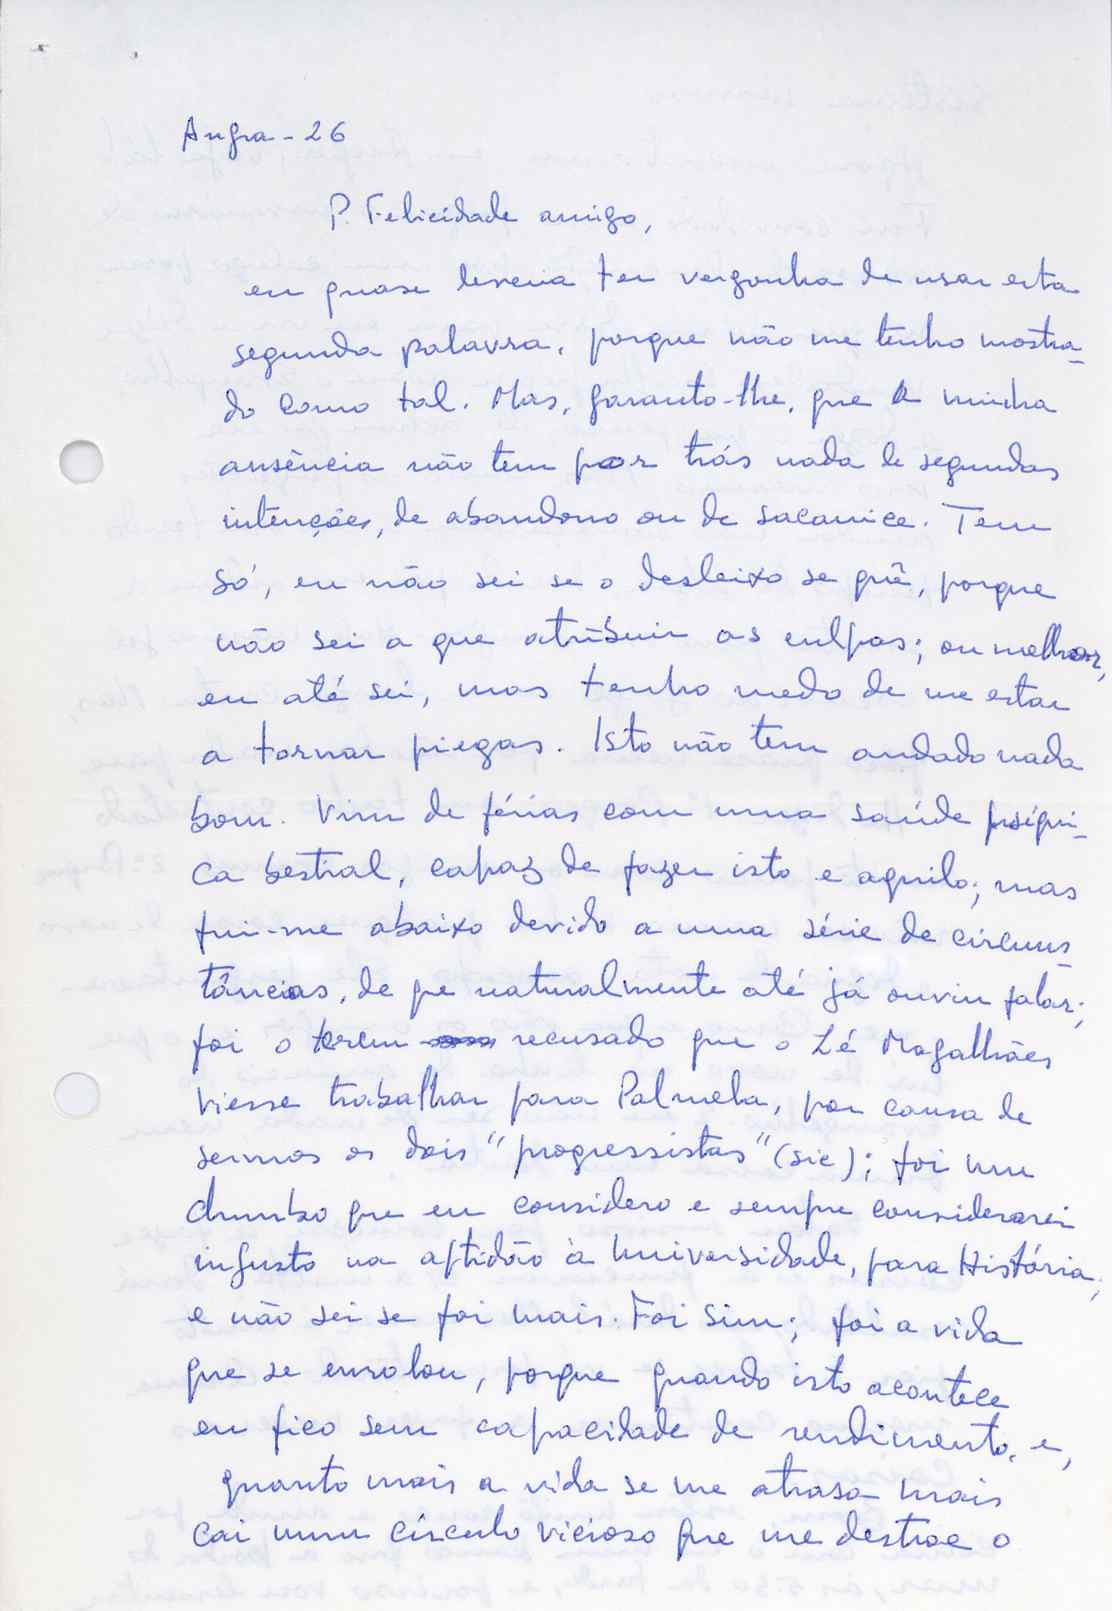 Angra - 26
P. Felicidade amigo,
eu quase deveria ter vergonha de usar esta
segunda palavra, porque não me tenho mostra-
do como tal. Mas, garanto-lhe, que a minha
ausência não tem por trás nada de segundas
intenções, de abandono ou de sacanice. Tem
só, eu não sei se o desleixo se quê, porque
não sei a que atribuir as culpas; ou melhor,
eu até sei, mas tenho medo de me estar
a tornar piegas. Isto não tem andado nada
bom. Vim de férias com uma saúde psíqui-
ca bestial, capaz de fazer isto e aquilo; mas
fui-me abaixo devido a uma série de circuns-
tâncias, de que naturalmente até já ouviu falar;
foi o terem recusado que o Zé Magalhães
viesse trabalhar para Palmela, por causa de
sermos os dois "progressistas" (sic); foi um
chumbo que eu considero e sempre considerarei
injusto na aptidão à Universidade, para História;
e não sei se foi mais. Foi sim; foi a vida
que se enrolou, porque quando isto acontece
eu fico sem capacidade de rendimento, e,
quanto mais a vida se me atrasa mais
cai num círculo vicioso que me destroe o